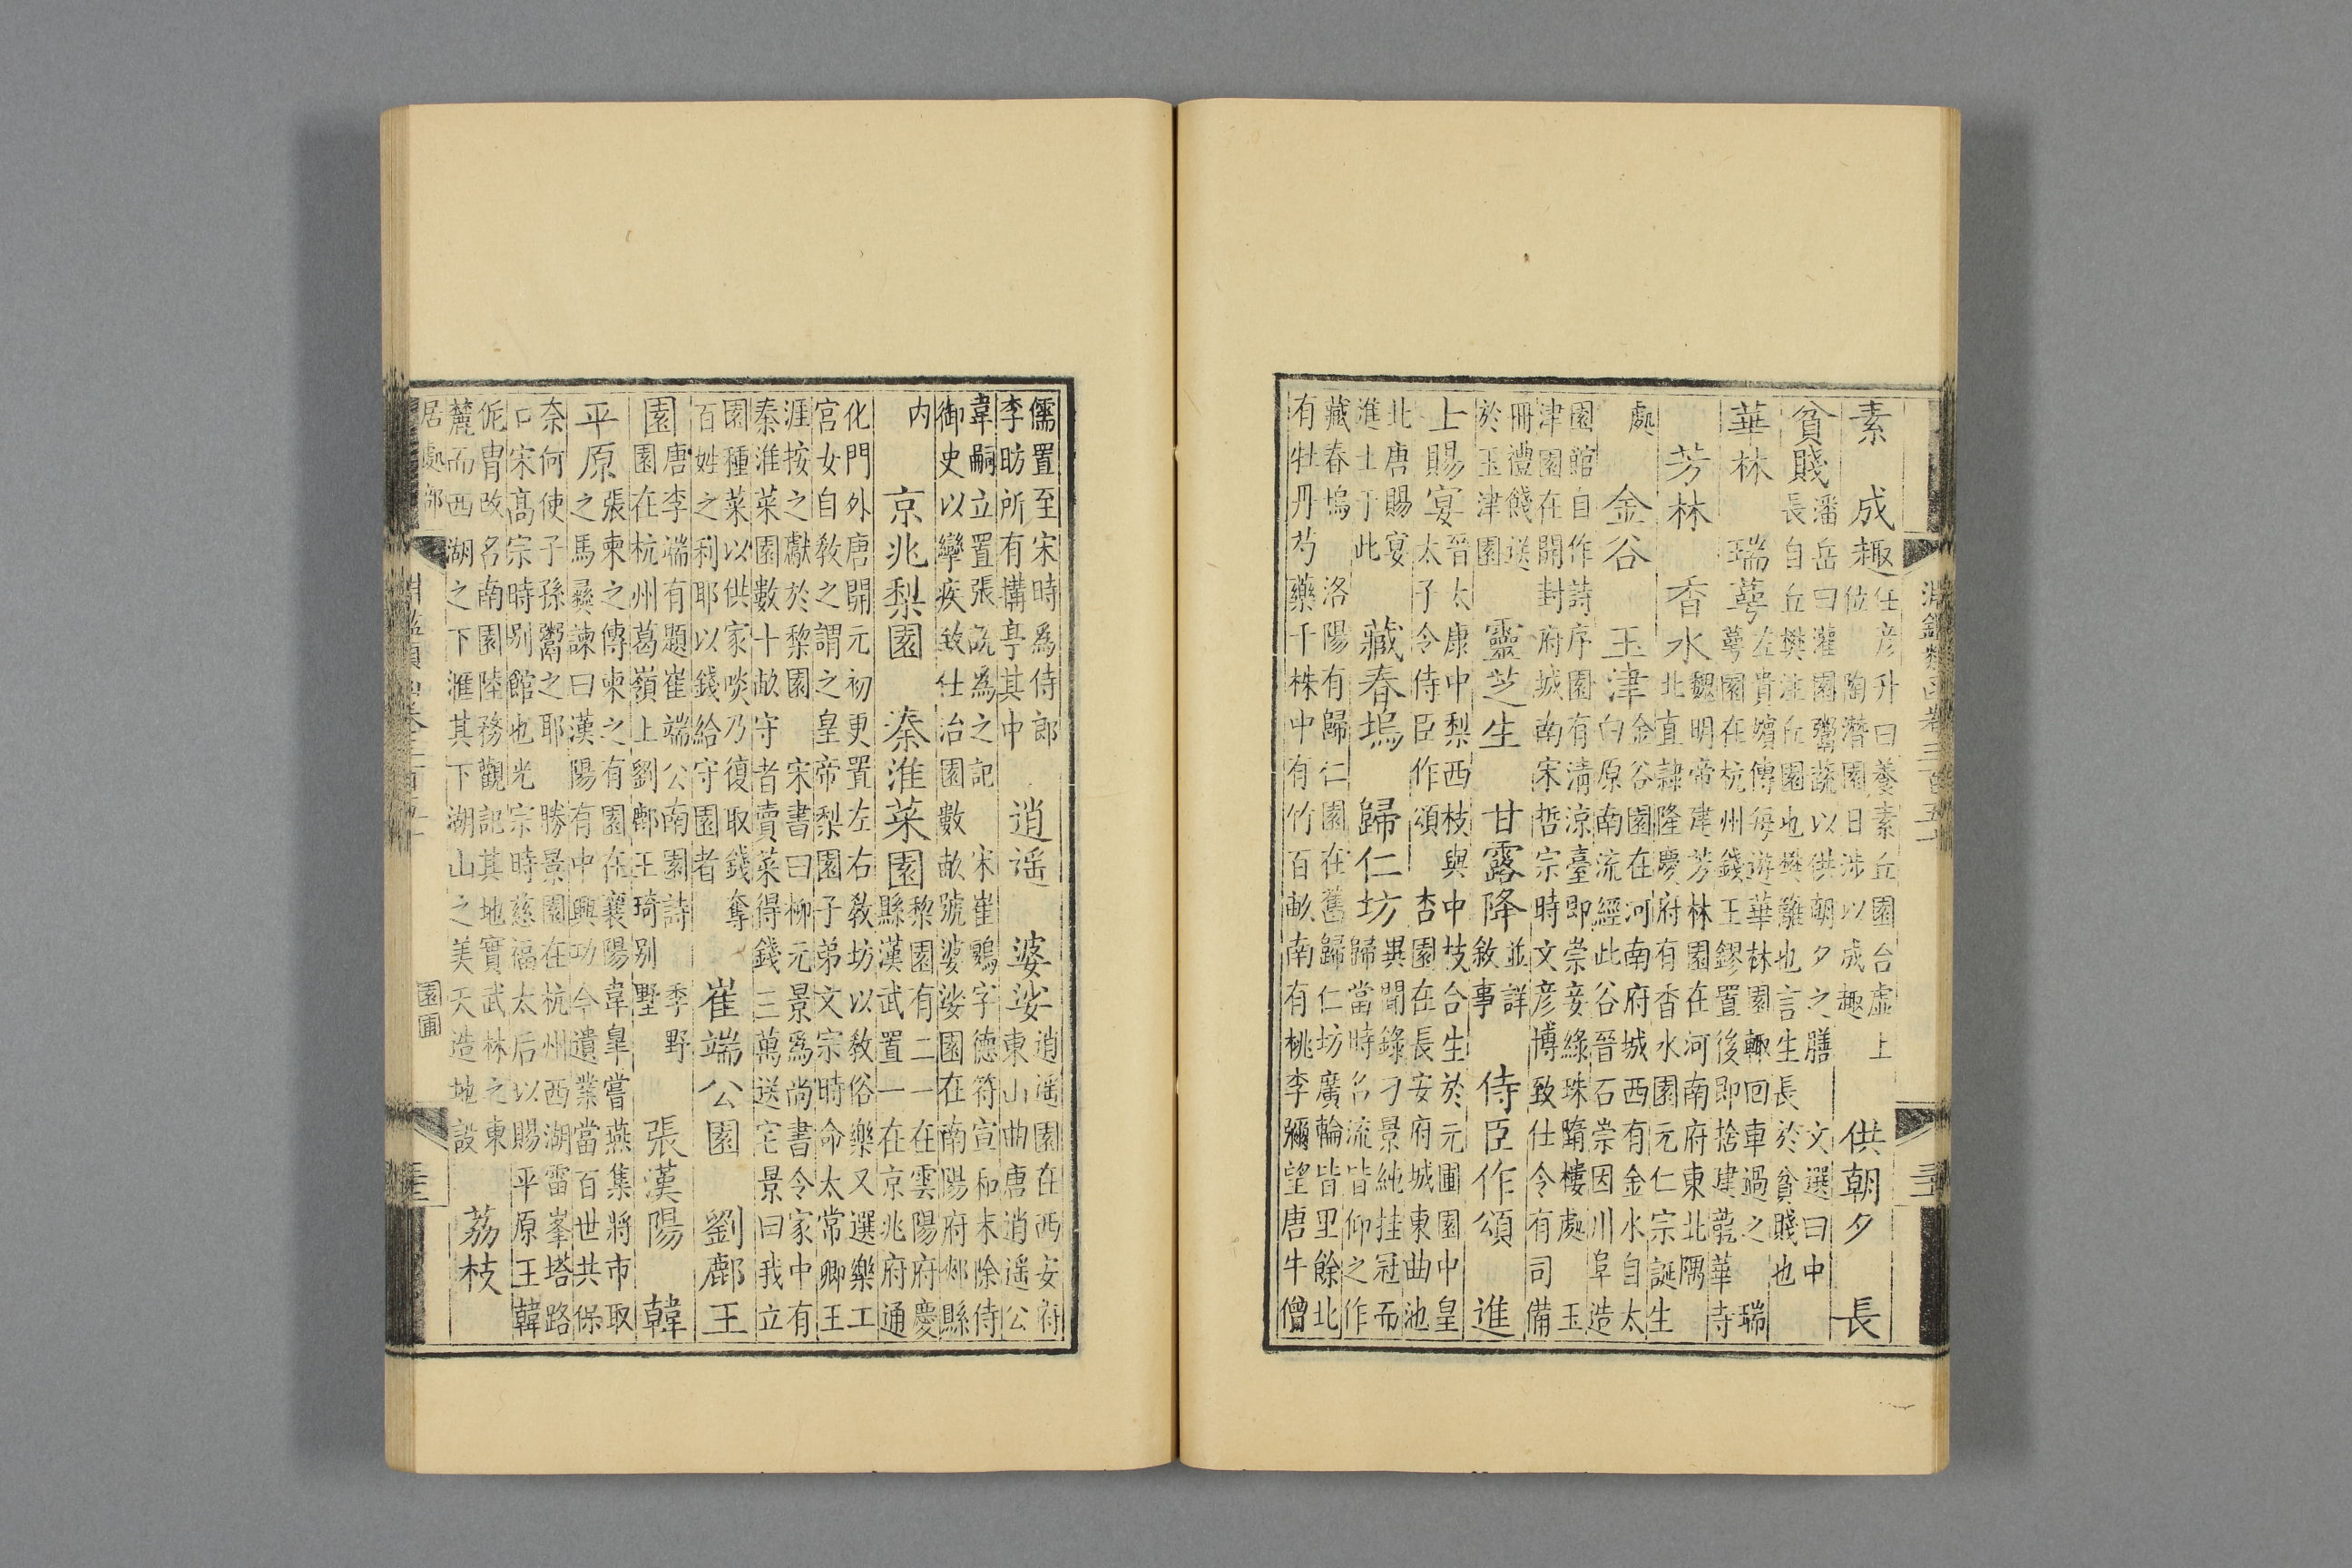 淵鑑類函卷三百五十
素 成趣
任彥升曰養素丘園台虛上
位 陶潛園日涉以成趣
供朝夕 長
貧賤
潘岳曰灌園鬻蔬以供朝夕之膳 文選曰中
長自丘樊注丘園也樊籬也言生長於貧賤也
華林 瑞萼
左貴嬪傳每遊華林園輒回車過之 瑞
萼園在杭州錢王鏐置後即捨建乾華寺
芳林 香水
魏明帝建芳林園在河南府東北隅
北直隸隆慶府有香水園元仁宗誕生
處
金谷 玉津
金谷園在河南府城西有金水自太
白原南流經此谷晉石崇因川阜造
園館自作詩序園有清涼臺即崇妾綠珠墮樓處 玉
津園在開封府城南宋哲宗時文彥博致仕令有司備
冊禮餞送
於玉津園
靈芝生 甘露降
並詳
敘事
侍臣作頌 進
上賜宴
晉太康中梨西枝與中枝合生於元圃園中皇
太子令侍臣作頌 杏園在長安府城東曲池
北唐賜宴
進士于此
藏春塢 歸仁坊
異聞錄刁景純挂冠而
歸當時名流皆仰之作
藏春塢 洛陽有歸仁園在舊歸仁坊廣輪皆里餘北
有牡丹芍藥千株中有竹百畝南有桃李彌望唐牛僧
儒置至宋時爲侍郎
李昉所有搆亭其中
逍遥 婆娑
逍遥園在西安府
東山曲唐逍遥公
韋嗣立置張説爲之記 宋崔鶠字德符宣和末除侍
御史以攣疾致仕治園數畝號婆娑園在南陽府郟縣
内
京兆梨園 秦淮菜園
黎園有二一在雲陽府慶
縣漢武置一在京兆府通
化門外唐開元初更置左右教坊以教俗樂又選樂工
宮女自教之謂之皇帝梨園子弟文宗時命太常卿王
涯按之獻於黎園 宋書曰柳元景爲尚書令家中有
秦淮菜園數十畝守者賣菜得錢三萬送宅景曰我立
園種菜以供家啖乃復取錢奪
百姓之利耶以錢給守園者
崔端公園 劉鄜王
園
唐李端有題崔端公南園詩
園在杭州葛嶺上劉鄜王琦别
季野
墅
張漢陽 韓
平原
張柬之傳柬之有園在襄陽韋皐嘗燕集將市取
之馬彞諫曰漢陽有中興功今遺業當百世共保
奈何使子孫鬻之耶 勝景園在杭州西湖雷峯塔路
口宋高宗時别館也光宗時慈福太后以賜平原王韓
侂胄改名南園陸務觀記其地實武林之東
麓而西湖之下滙其下湖山之美天造地設
荔枝
居處部
園圃